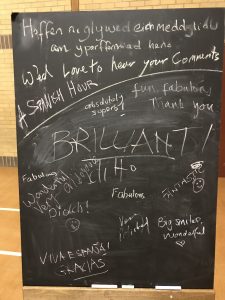 Hoffen ni glywed eich meddyliau
am y perfformiad hano
We'd Love to hear your Comments
A SPANISH HOUR
absolutely superb!
fun, fabulous
Thank you
BRILLIANT!
Fabulous
Wonderful
Very
Diolch!
Fabulous
Very
Big smiles,
wonderful
VIVA ESPAÑA!
GRACIAS